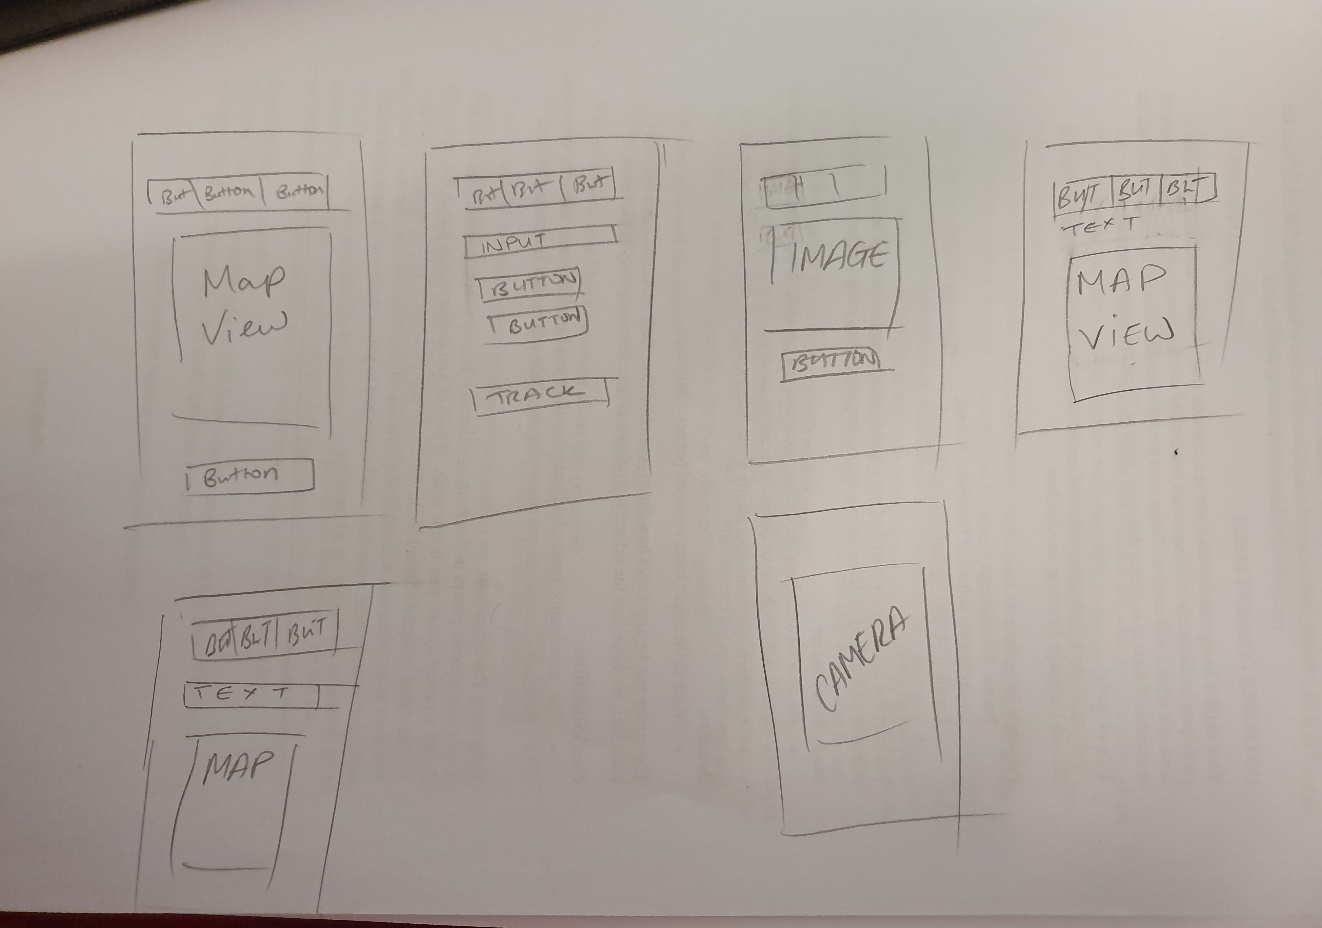 But Button Button
Map
View
Button
But But But
INPUT
BUTTON
BUTTON
TRACK
IMAGE
BUTTON
BUT BUT BUT
TEXT
MAP
VIEW
BUT BUT BUT
TEXT
MAP
CAMERA